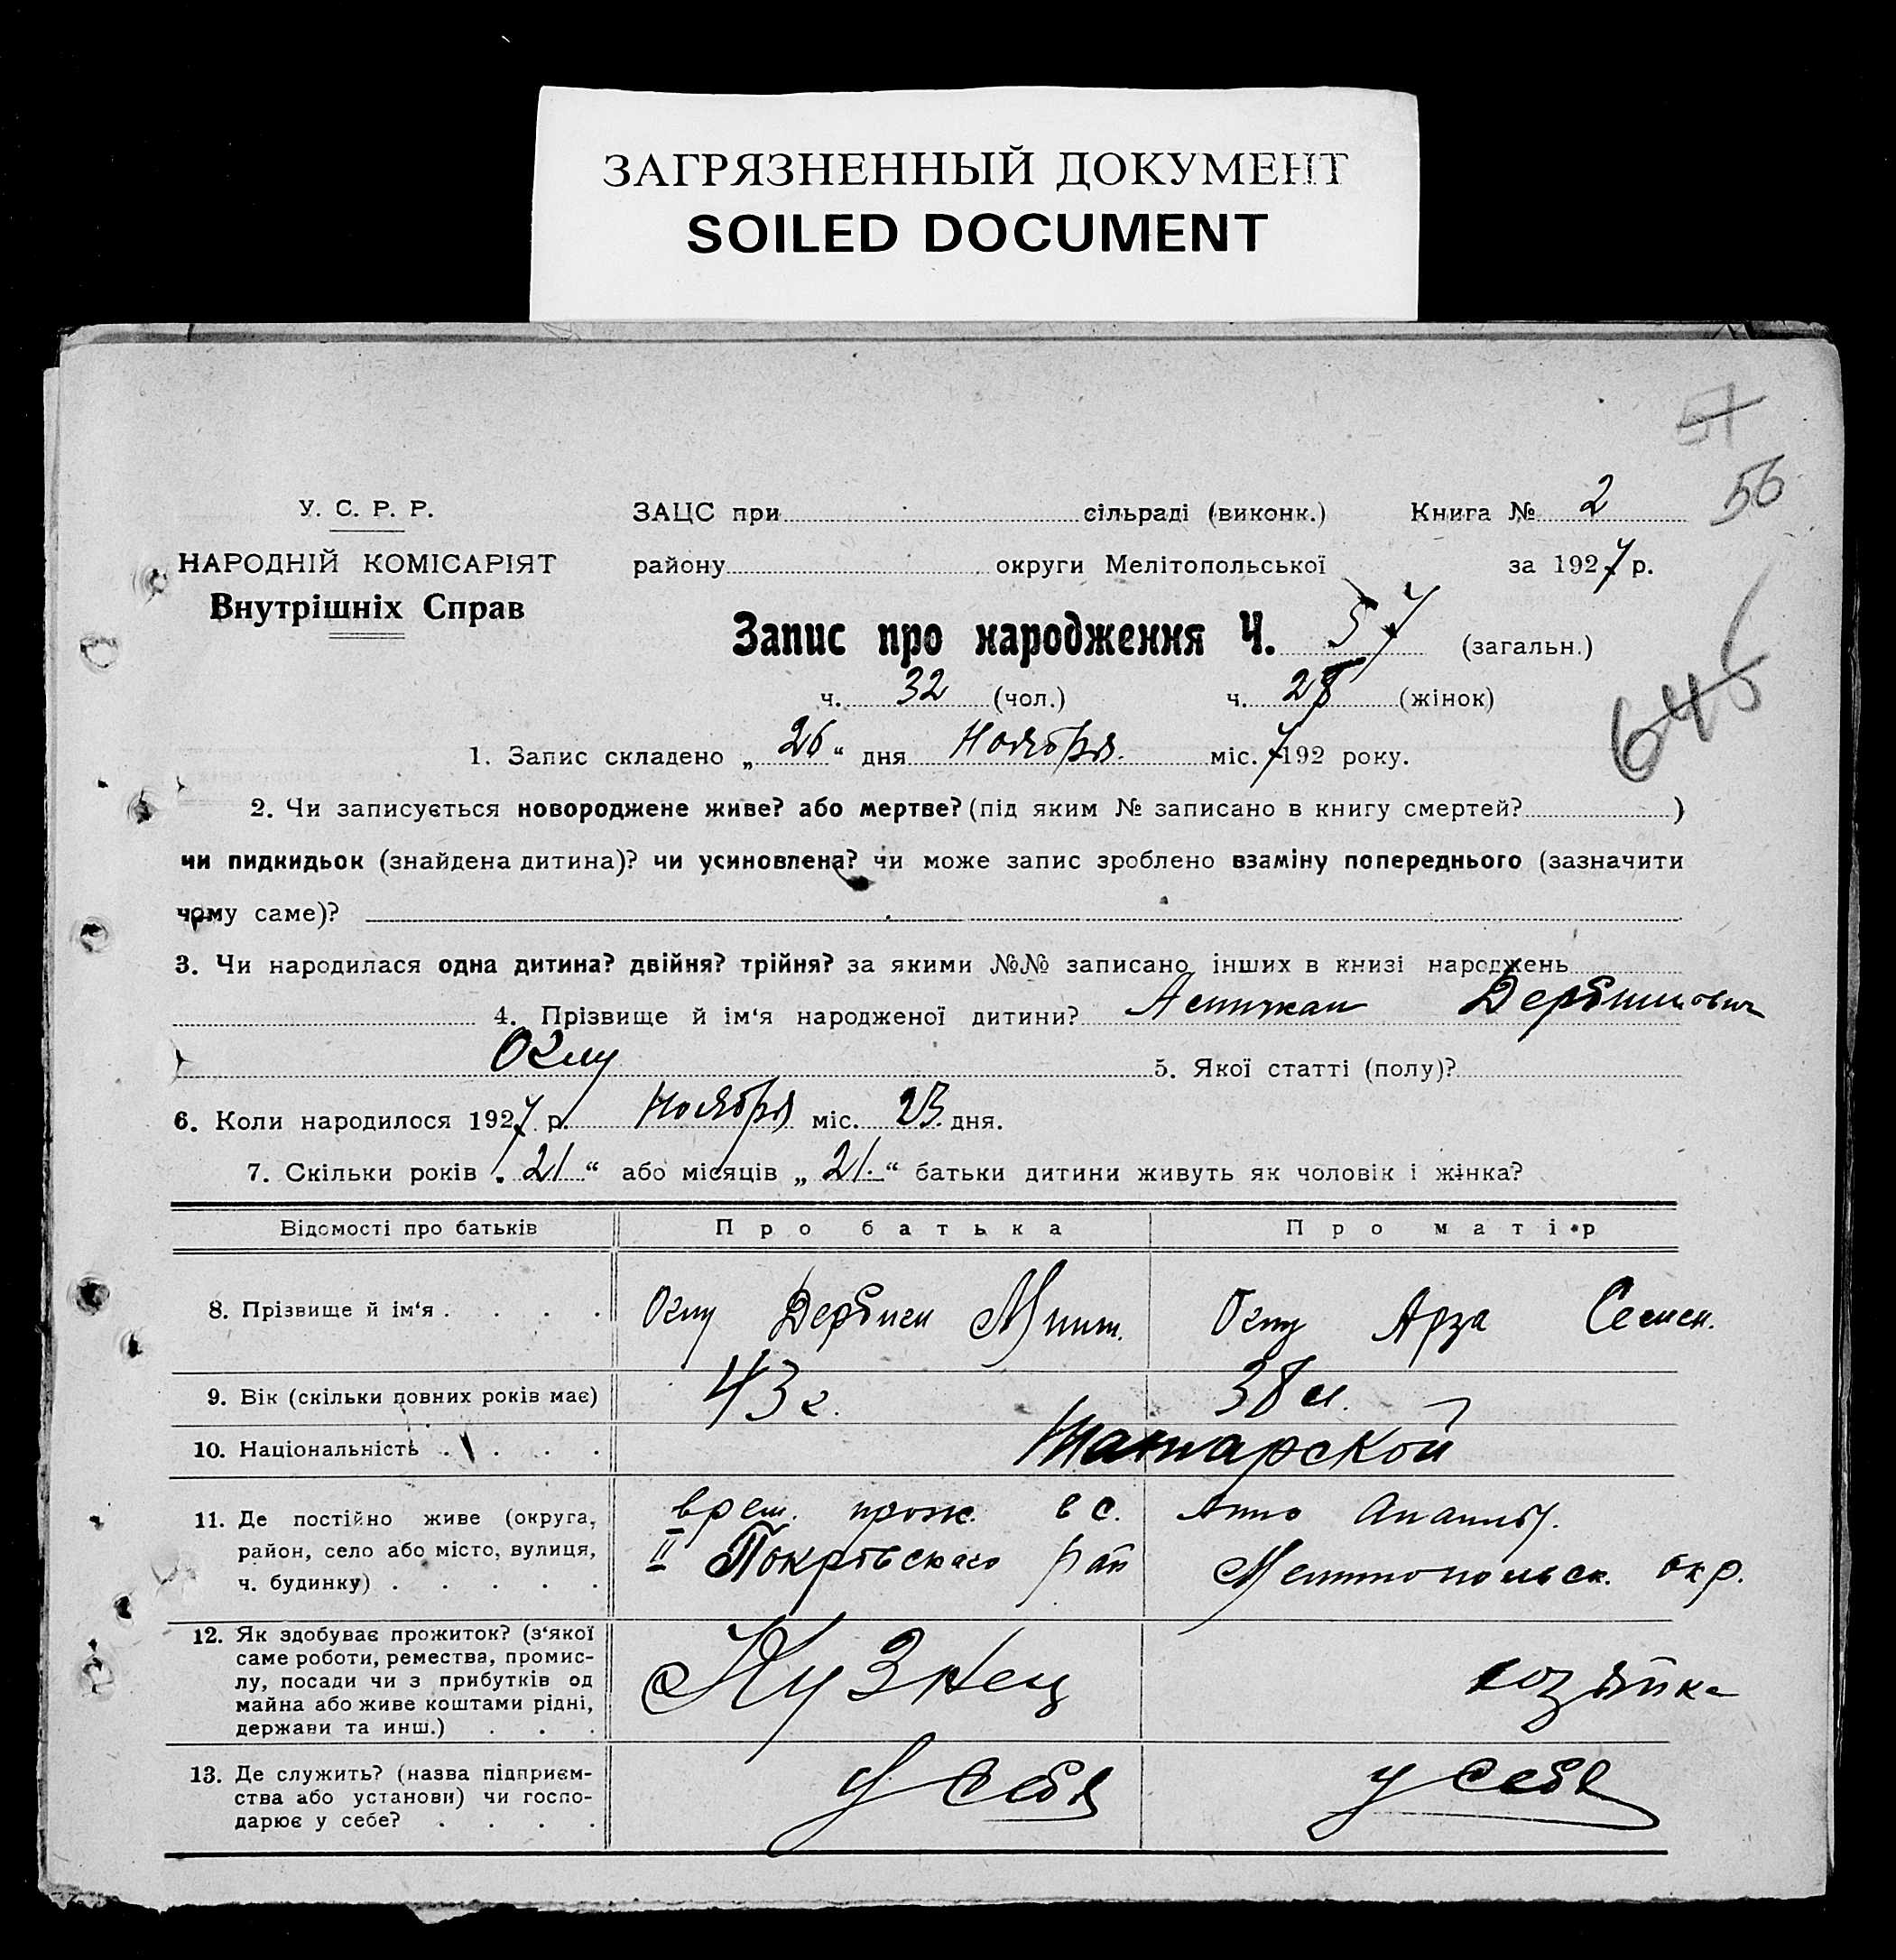 ЗАГРЯЗНЕННЫЙ ДОКУМЕНТ
SOILED DOCUMENT
57
56
У. С. Р. Р.
НАРОДНІЙ КОМІСАРІЯТ
Внутрішніх Справ
ЗАЦС при сільраді (виконк.) Книга № 2
району округи Мелітопольської за 1927 р.
Запис про народження Ч. 57 (загальн.)
ч. 32 (чол.) ч. 25 (жінок)
1. Запис складено „ 26 “ дня Ноября міс. 7192 року.
2. Чи записується новороджене живе? або мертве? (під яким № записано в книгу смертей? )
чи пидкидьок (знайдена дитина)? чи усиновлена? чи може запис зроблено взаміну попереднього (зазначити
чому саме)?
3. Чи народилася одна дитина? двійня? трійня? за якими №№ записано інших в книзі народжень
4. Прізвище й ім‘я народженої дитини? Дербишович
Окму 5. Якої статті (полу)?
6. Коли народилося 1927 р. Ноября міс. 23 дня.
7. Скільки років „ 21 “ або місяців „ 21. “ батьки дитини живуть як чоловік і жінка?
Відомості про батьків Про батька Про матір
8. Прізвище й ім‘я . . . . Окму Дербиш Окму Арза Семен.
9. Вік (скільки повних років має) 43 г. 38 л.
10. Національність . . . . Татарской
11. Де постійно живе (округа,
район, село або місто, вулиця,
ч. будинку) . . . . .
врем. прож. в с.
II Покровскаго рай Мелитопольск. окр.
12. Як здобуває прожиток? (з‘якої
саме роботи, ремества, промис-
лу, посади чи з прибутків од
майна або живе коштами рідні,
держави та инш.) . . .
Кузнец хозяйка
13. Де служить? (назва підприєм-
ства або установи) чи госпо-
дарює у себе? . . . .
у себя у себя